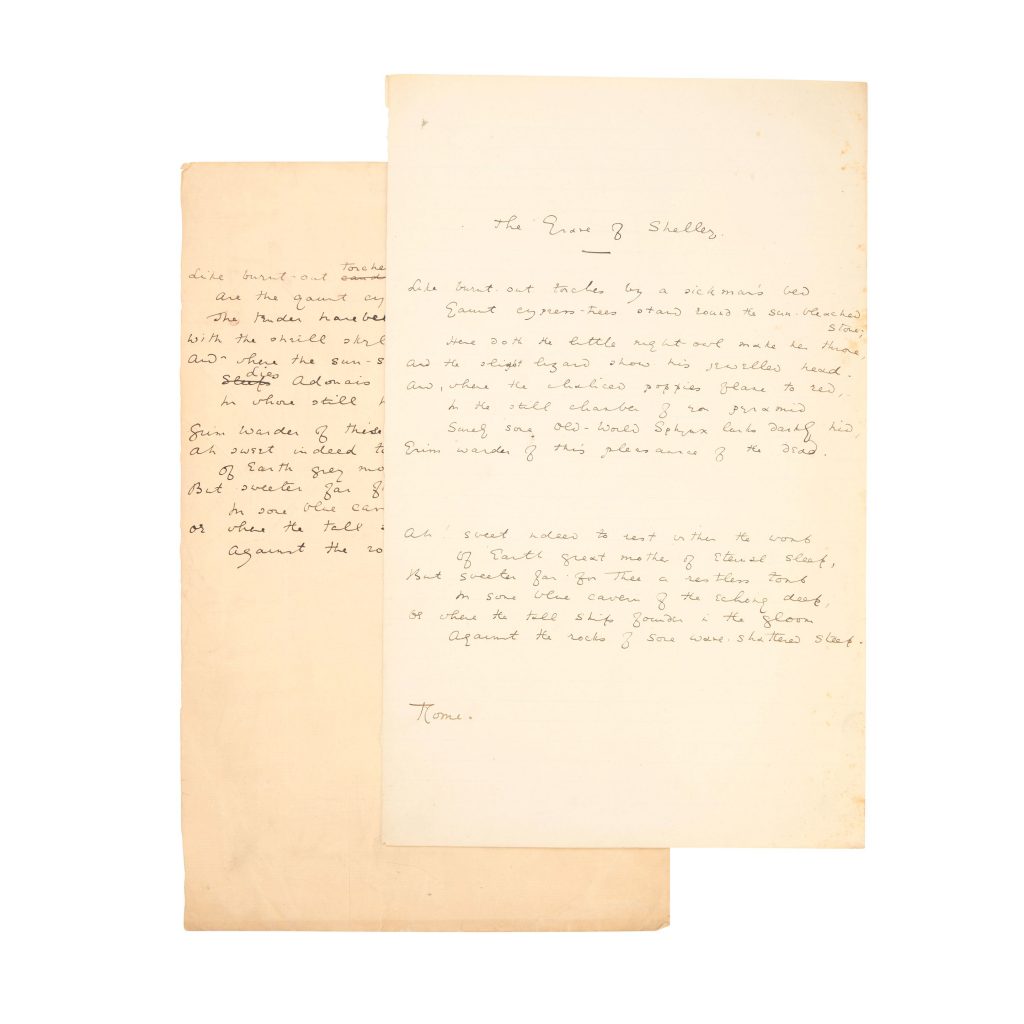 Like burnt-out torche
cand
Are the gaunt cy
The tender harebel
With the shrill skyl
And where the sun-s
dies
Sleeps Adonais
In whose still h
Grim warder of this
Ah sweet indeed to
Of Earth grey mo
But sweeter far f
In some blue cav
Or where the tall s
Against the ro
The Grave of Shelley.
Like burnt-out torches by a sick man's bed
Gaunt cypress-trees stand round the sun-bleached
stone;
Here doth the little night-owl make her throne,
And the slight lizard show his jewelled head.
And, where the chaliced poppies flame to red,
In the still chamber of yon pyramid
Surely some Old-World Sphynx lurks darkly hid,
Grim warder of this pleasaunce of the dead.
Ah! sweet indeed to rest within the womb
Of Earth great mother of Eternal Sleep,
But sweeter far for Thee a restless tomb
In some blue cavern of the Echoing deep,
Or where the tall ships founder in the gloom
Against the rocks of some wave-shattered steep.
Rome.